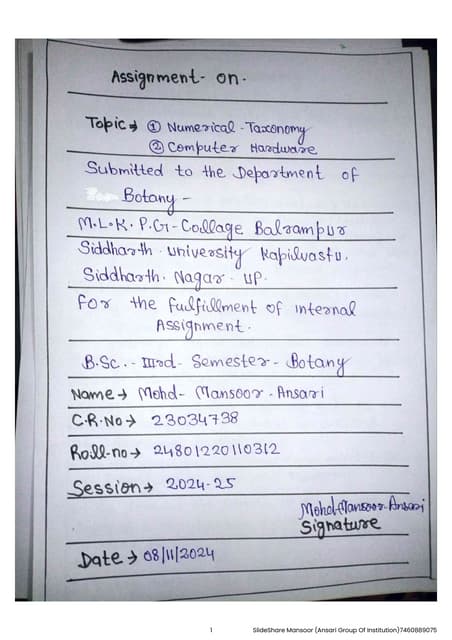 Assignment - on.
Topic → ① Numerical - Taxonomy
② Computer Hardware
Submitted to the Department of
Botany -
M.L.K. P.G - Collage Balrampur
Siddharth University Kapilvastu.
Siddharth. Nagar - UP.
For the fulfillment of internal
Assignment.
B.Sc. - IIIrd - Semester - Botany
Name → Mohd - Mansoor - Ansari
C.R.No → 23034738
Roll-no → 24801220110312
Session → 2024-25
Mohd-Mansoor-Ansari
Signature
Date → 08/11/2024
1 SlideShare Mansoor (Ansari Group Of Institution)7460889075